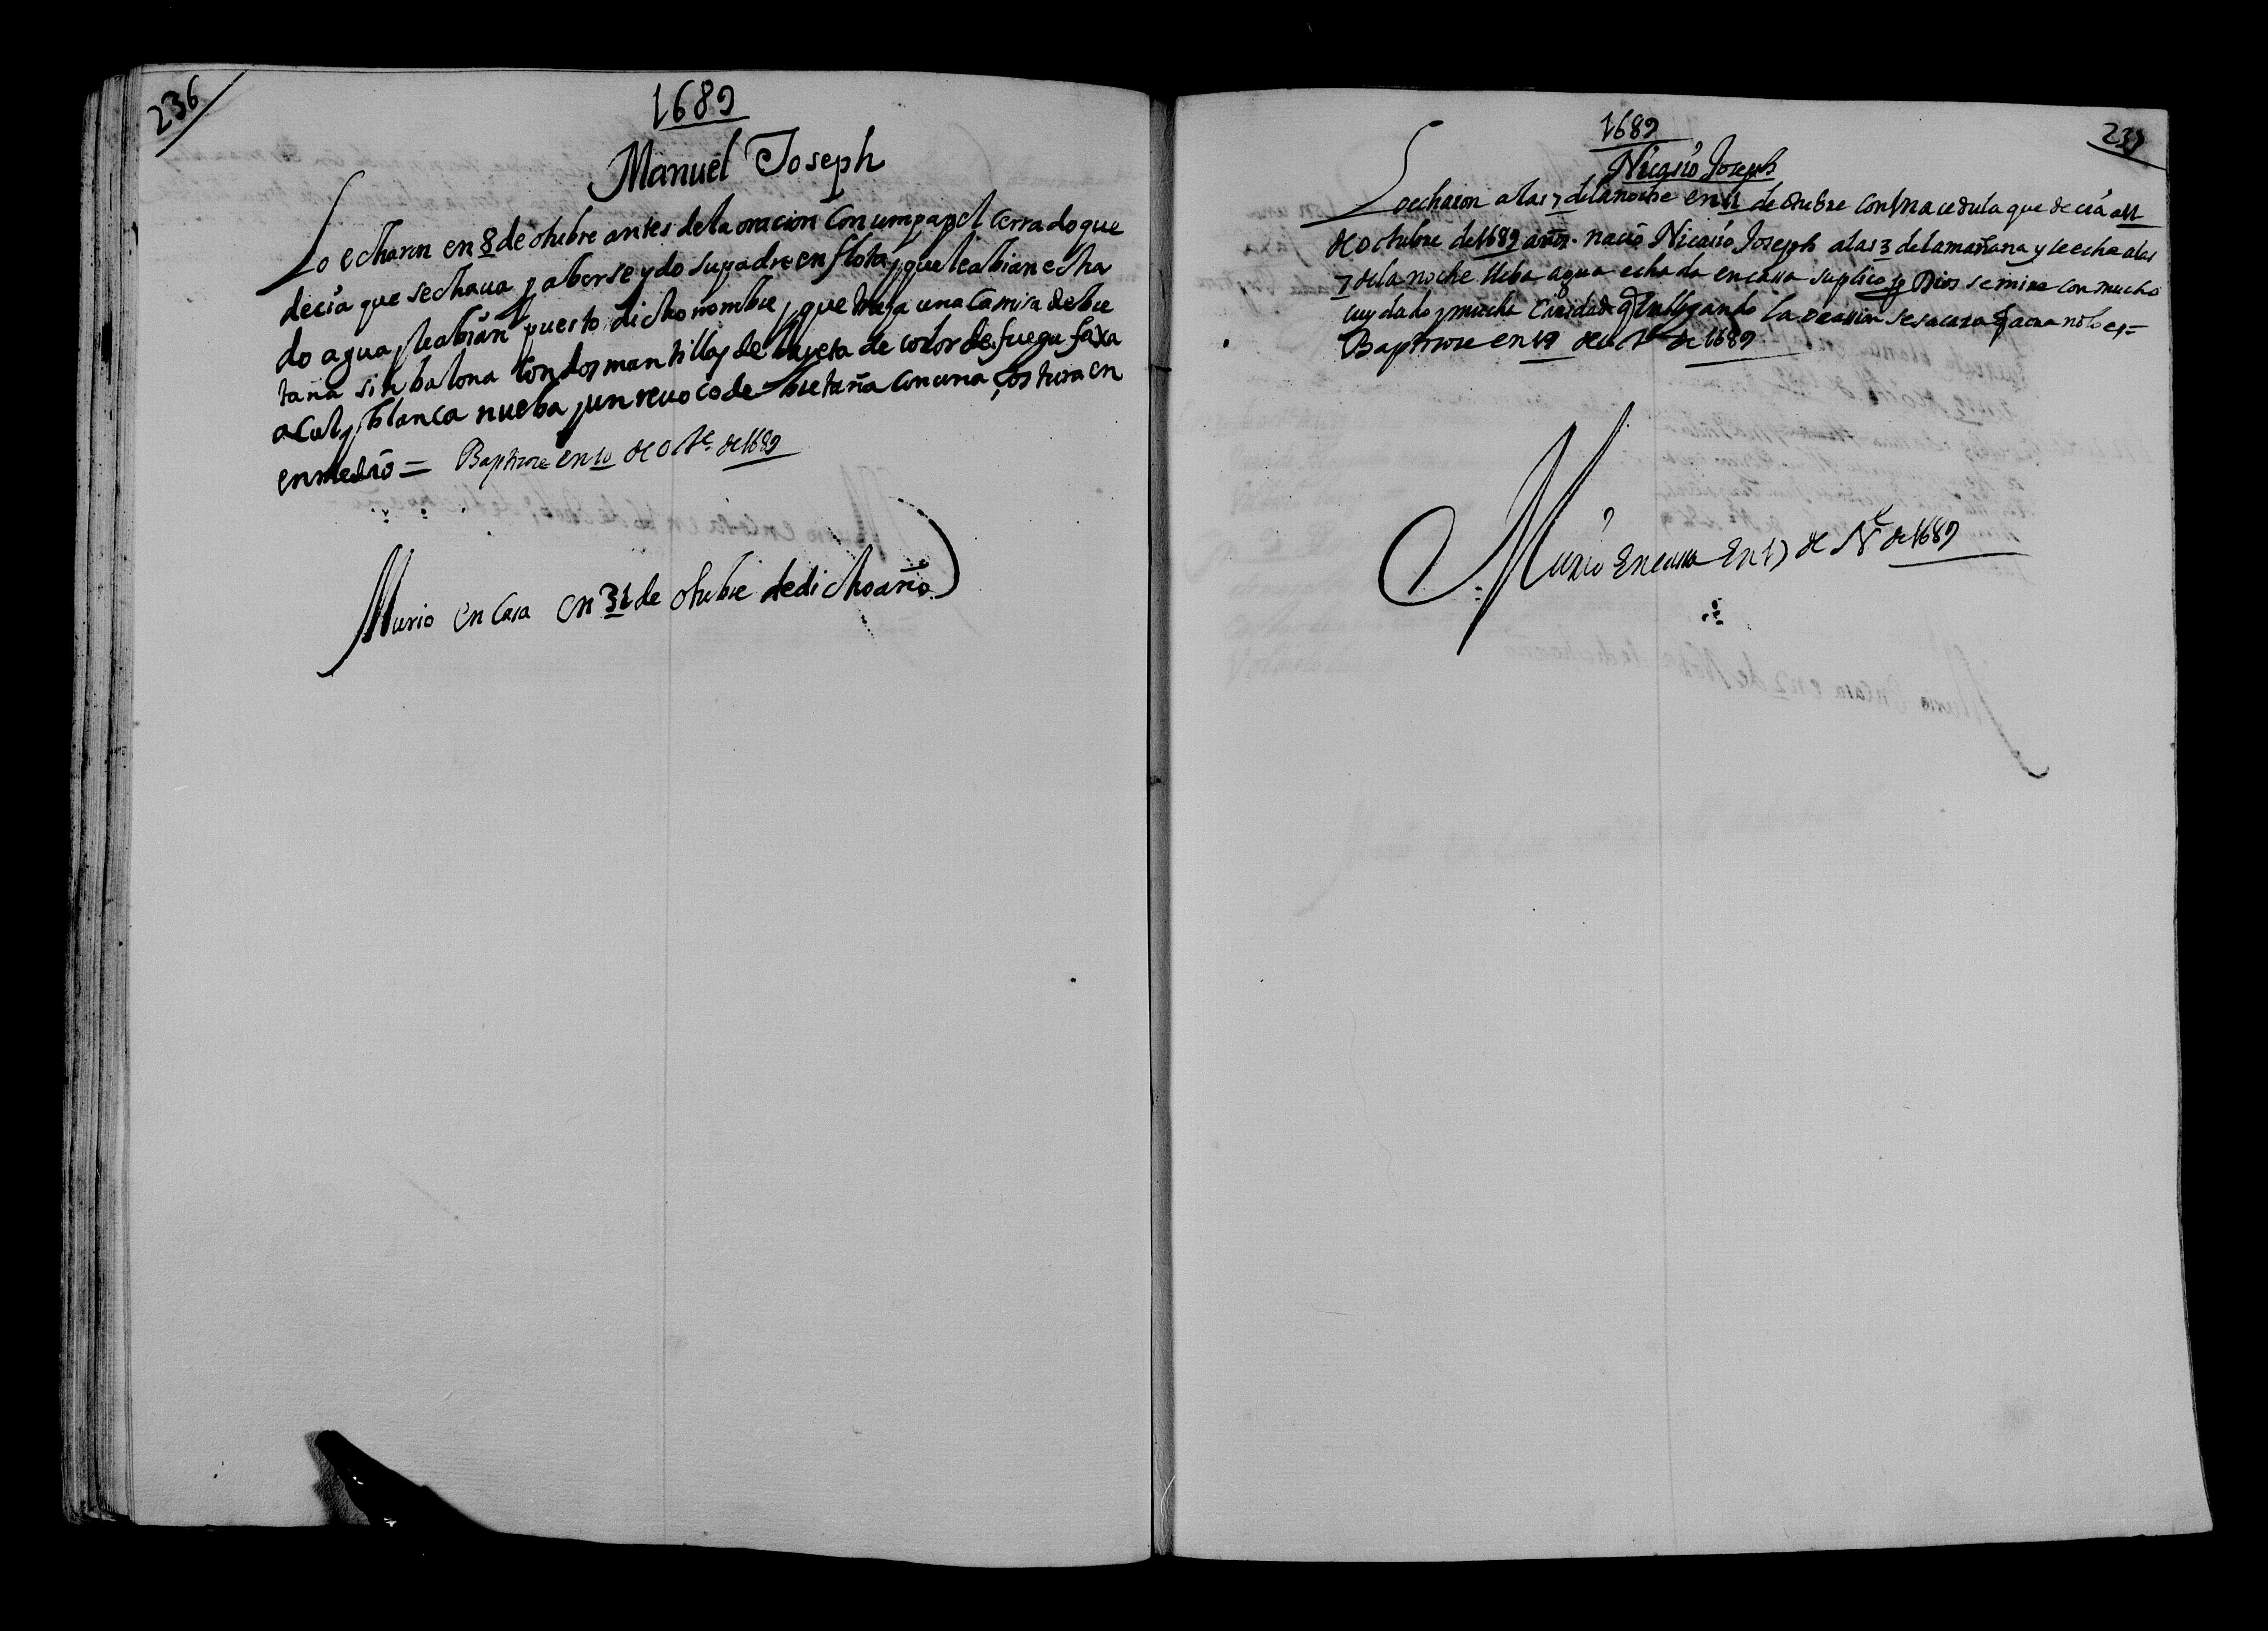 236
1689
Manuel Joseph
Lo echaron en 8 de otubre antes de la oracion con um papel cerrado que
decia que sechaua y aberse ydo su padre en flota y que le abian echa
do agua y le abian puesto dicho nombre y que traja una camisa de bre
taña sin balona con dos mantillas de bajeta de color de fuego faxa
açul y blanca nueba y un reuoço de bretaña con una costura en
enmedio = Baptizose en 10 de Ote. de 1689
Murio en Casa en 31 de otubre de dicho año
237
1689
Nicasio Joseph
Lo echaron a las 7 de la noche en 11 de otubre con Una cedula que decia a 11
de octubre de 1689 años. nacio Nicasio Joseph a las 3 de la mañana y se echa a las
7 de la noche lleba agua echada en cassa suplico por Dios se mire con mucho
cuydado y mucha Caridad q en llegando la ocassion se sacara
Baptizose en 19 de Ote. de 1689
Murio En cassa En 17 de Ne de 1689